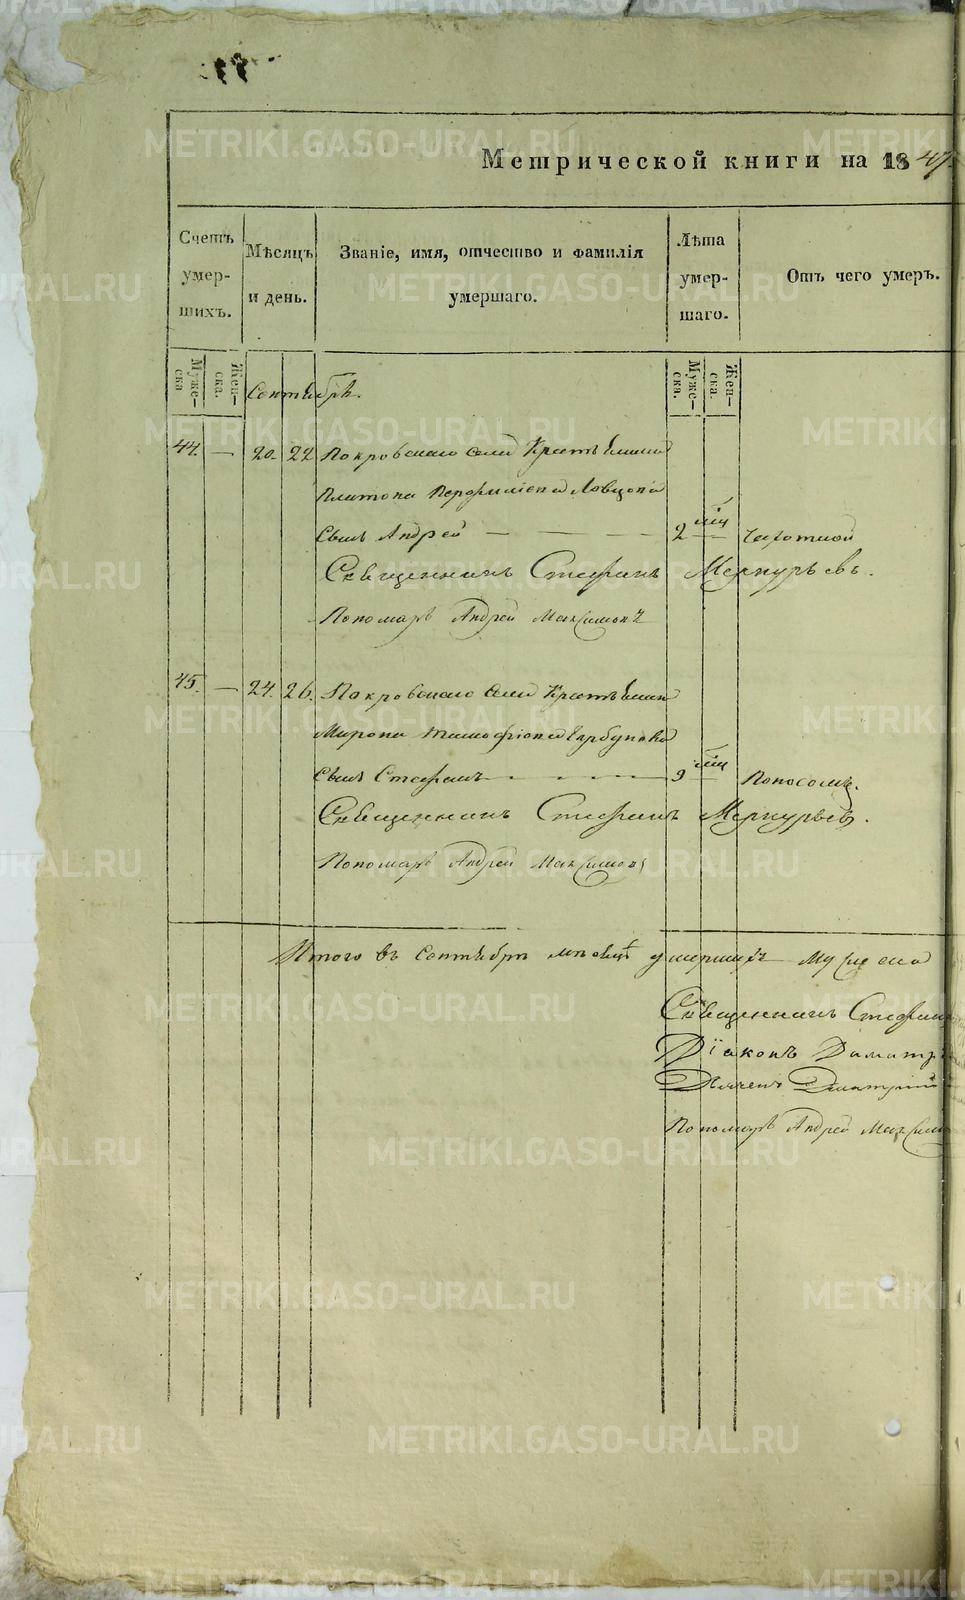 Метрической книги на 1847
Счетъ умер-шихъ.
Мѣсяцъ и день.
Званіе, имя, отчество и фамилія умершаго.
Лѣта умер-шаго.
Отъ чего умеръ.
Муже-ска
Жен-ска.
Муже-ска.
Жен-ска.
Сентябрь.
44. — 20. 22 Покровскаго села Крестьянина
Платона Перфиліева
сынъ Андрей — — — 2 мѣц чахоткой
Священникъ Стефанъ Меркурьевъ.
Пономарь Андрей Максимовъ
45. — 24. 26. Покровскаго села Крестьянина
Мирона Тимофіева Горбунова
сынъ Стефанъ — — — 9 мѣц поносомъ.
Священникъ Стефанъ Меркурьевъ.
Пономарь Андрей Максимовъ
Итого въ сентябрѣ мѣсяцѣ умершихъ мужеска
Священникъ Стефанъ
Діаконъ Димитрі
Дьячекъ Дмитрій
Пономарь Андрей Максимо
METRIKI.GASO-URAL.RU